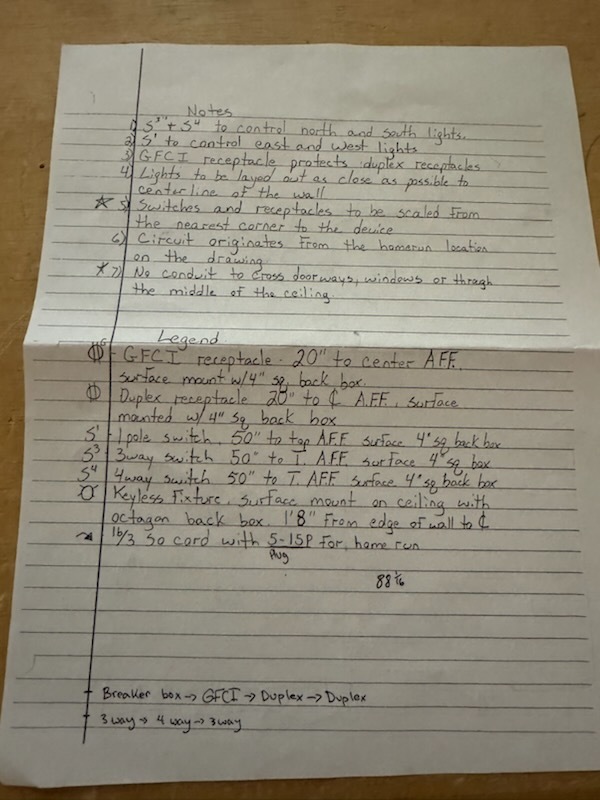 Notes
1) S³ + S⁴ to control north and south lights.
2) S¹ to control east and west lights
3) GFCI receptacle protects duplex receptacles
4) Lights to be layed out as close as possible to
centerline of the wall
☆ 5) Switches and receptacles to be scaled from
the nearest corner to the device
6) Circuit originates from the homerun location
on the drawing
* 7) No conduit to cross doorways, windows or through
the middle of the ceiling.
Legend
G - GFCI receptacle - 20" to center AFF.
surface mount w/4" sq. back box.
Duplex receptacle 20" to ℄ A.F.F. surface
mounted w/4" sq back box
S¹ - 1 pole switch, 50" to top AFF surface 4" sq back box
S³ 3way switch 50" to T. AFF. surface 4" sq box
S⁴ 4way switch 50" to T. AFF surface 4" sq back box
Keyless Fixture, surface mount on ceiling with
octagon back box. 1'8" from edge of wall to ℄
16/3 So cord with 5-15P for home run
Plug
88 1/16
- Breaker box → GFCI → Duplex → Duplex
- 3 way → 4 way → 3way